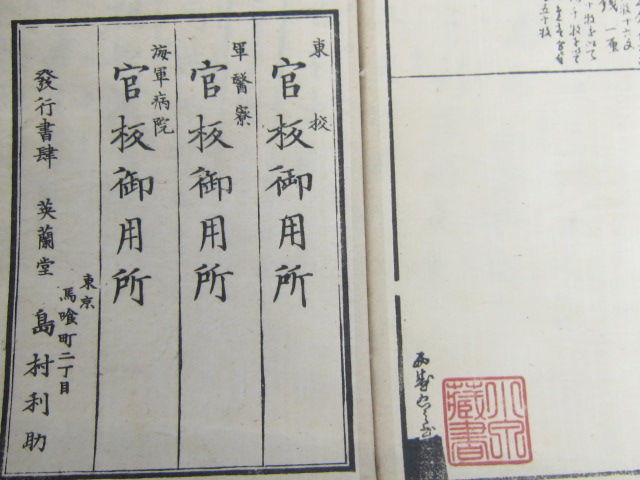 東校
官板御用所
軍醫寮
官板御用所
海軍病院
官板御用所
發行書肆 英蘭堂 島村利助
東京
馬喰町二丁目
藏書